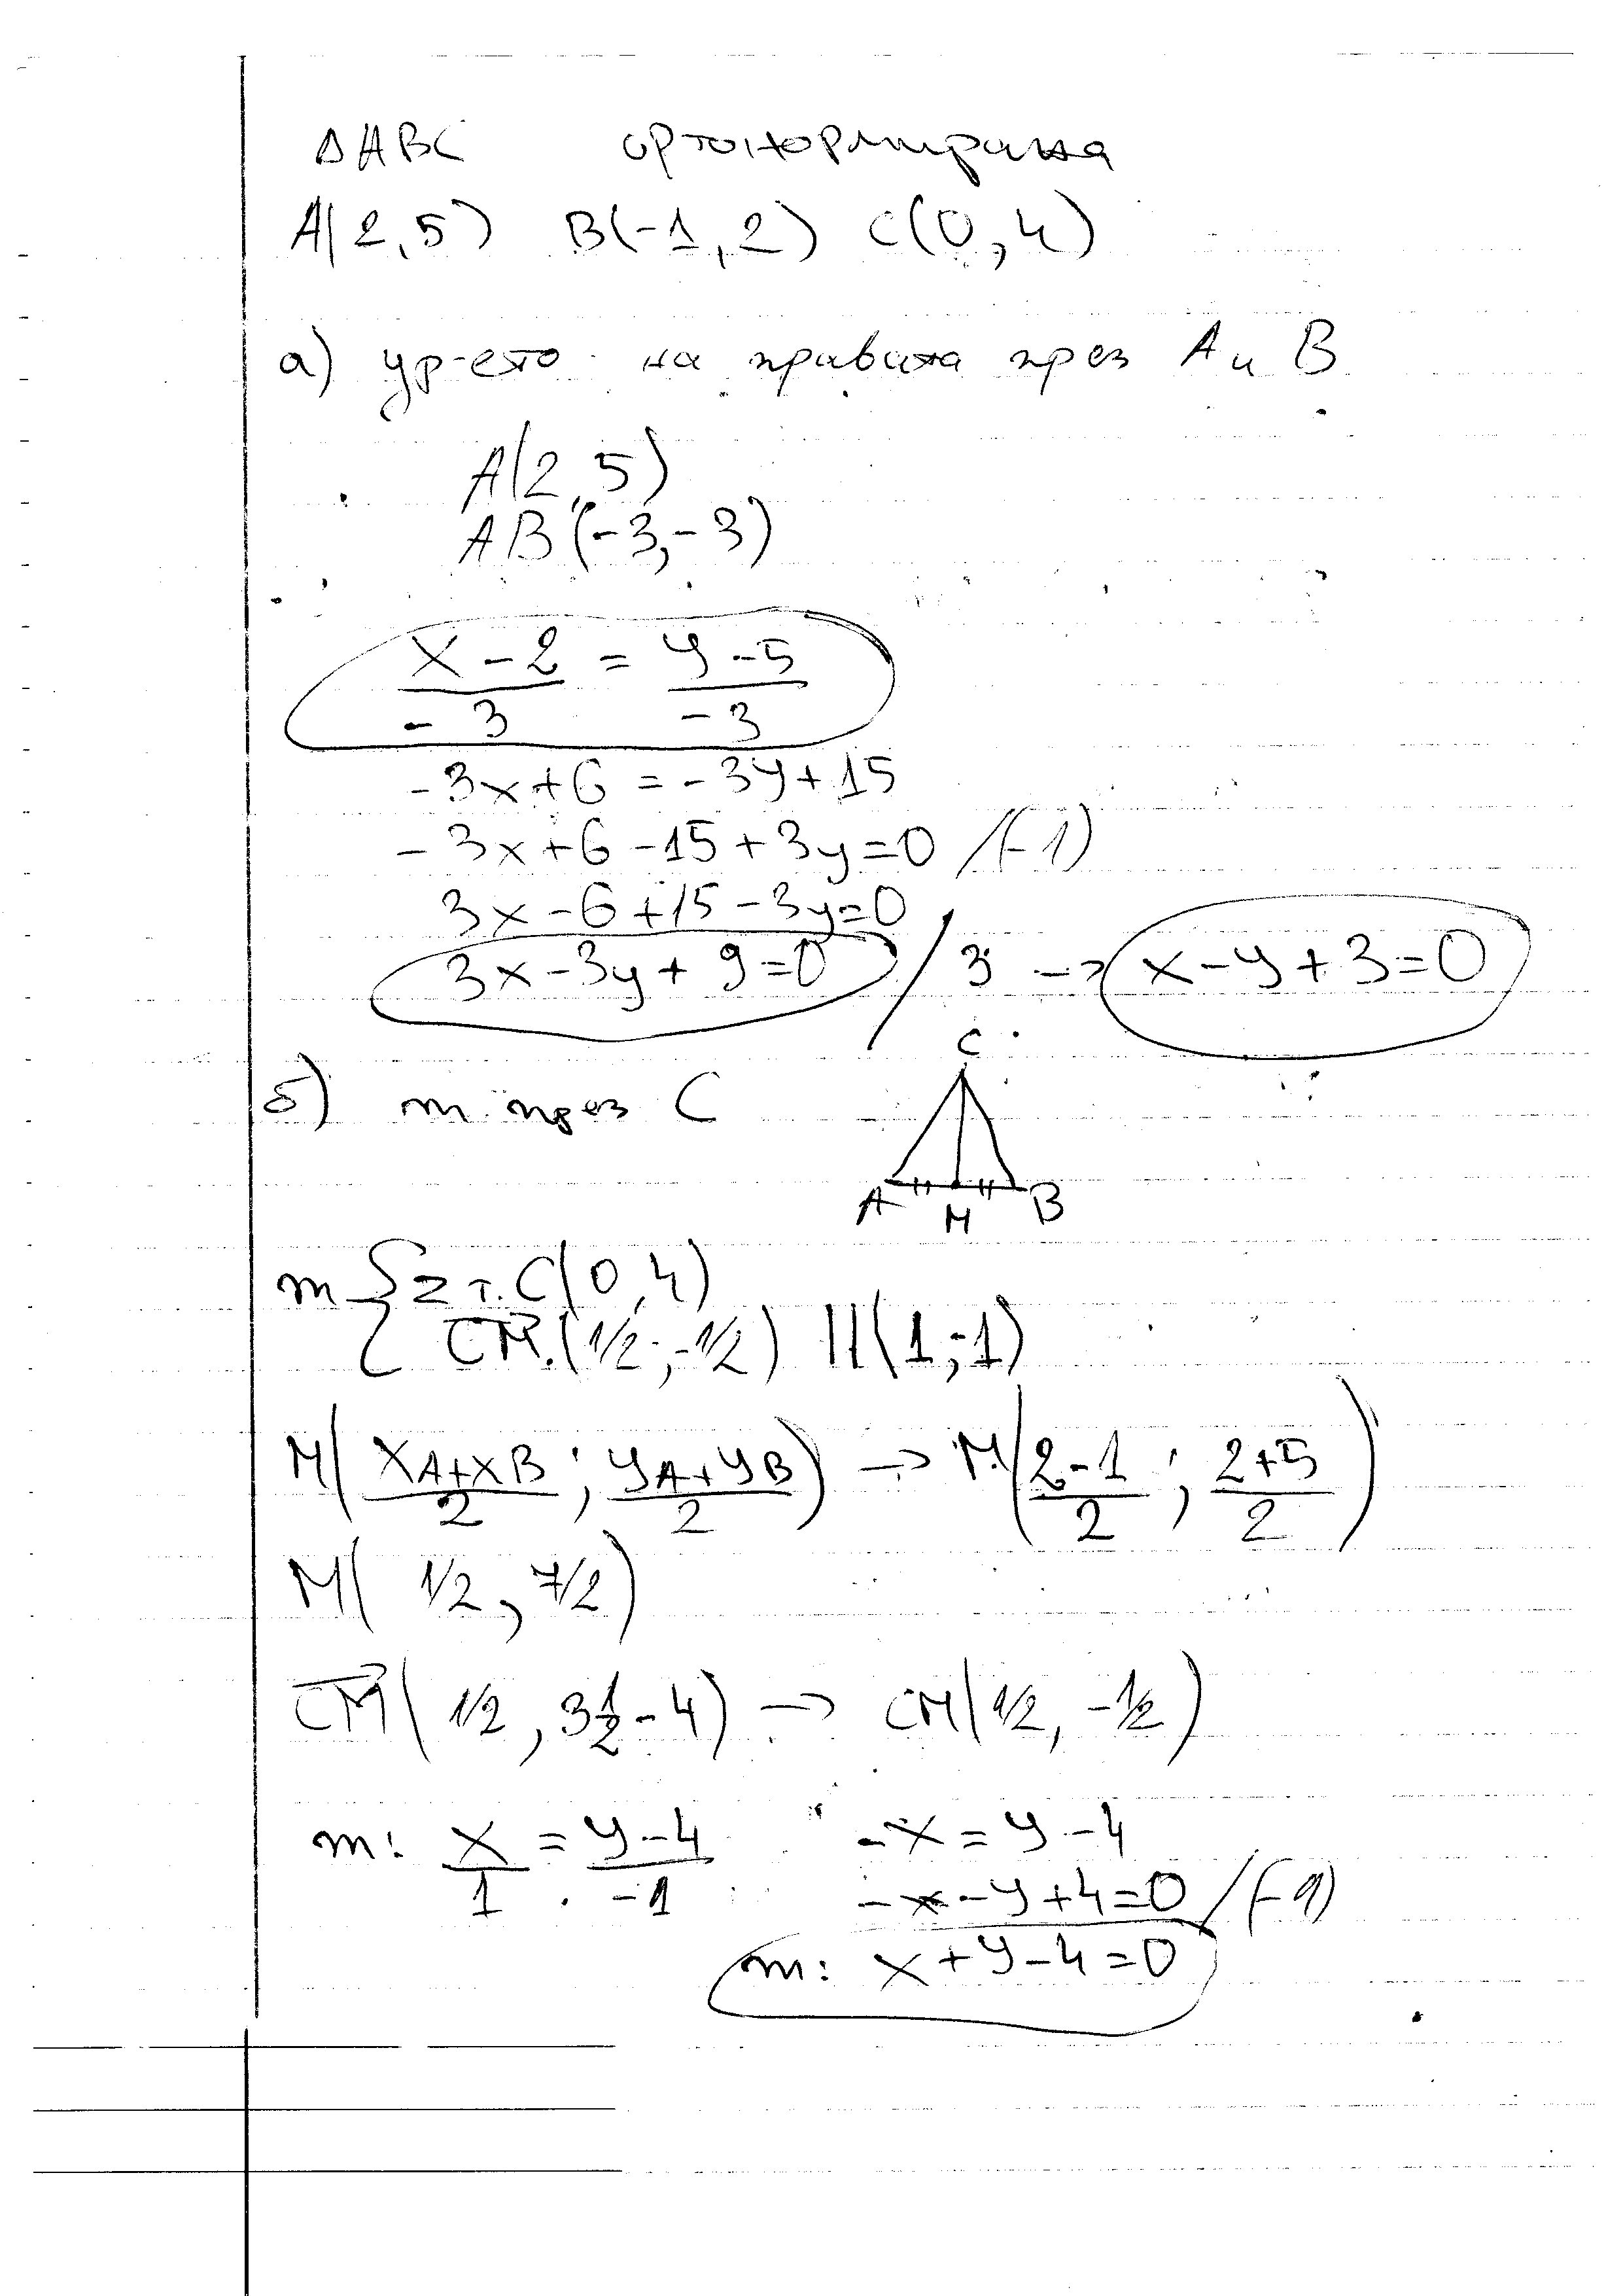 ΔABC ортонормирана
A(2,5) B(-1,2) C(0,4)
а) ур-ето на правата през A и B
A(2,5)
AB(-3,-3)
x-2 / -3 = y-5 / -3
-3x+6=-3y+15
-3x+6-15+3y=0 /(-1)
3x-6+15-3y=0
3x-3y+9=0 / 3 → x-y+3=0
б) m през C
C
A M B
m { z т. C(0,4)
CM(1/2;-1/2) ||(1;-1)
M(xA+xB / 2 ; yA+yB / 2) → M(2-1 / 2 ; 2+5 / 2)
M(1/2, 7/2)
CM(1/2, 3 1/2 - 4) → CM(1/2, -1/2)
m: x / 1 = y-4 / -1 -x=y-4
-x-y+4=0 /(-1)
m: x+y-4=0